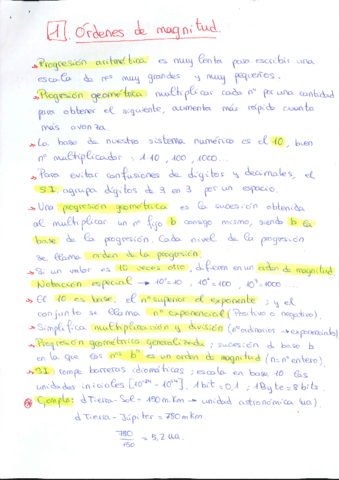 1. Ordenes de magnitud
→ Progresión aritmética es muy lenta para escribir una
escala de nos muy grandes y muy pequeños.
→ Progresión geométrica multiplicar cada nº por una cantidad
para obtener el siguiente, aumenta más rápido cuanto
más avanza.
→ La base de nuestro sistema numérico es el 10, buen
nº multiplicador: 1·10, 100, 1000...
→ Para evitar confusiones de dígitos y decimales, el
SI agrupa dígitos de 3 en 3 por un espacio.
→ Una progresión geométrica es la sucesión obtenida
al multiplicar un nº fijo b consigo mismo, siendo b la
base de la progresión. Cada nivel de la progresión
se llama orden de la progresión.
→ Si un valor es 10 veces otro, difieren en un orden de magnitud
Notación especial → 10¹=10, 10²=100, 10³=1000....
→ El 10 es base, el nº superior el exponente; y el
conjunto se llama nº exponencial (Positivo o negativo).
→ Simplifica multiplicación y división (nº ordinarios → exponenciales)
→ Progresión geométrica generalizada; sucesión de base b
en la que los nos bⁿ es un orden de magnitud (n= nº entero).
→ SI rompe barreras idiomáticas; escala en base 10 las
unidades iniciales 1 bit = 0,1; 1 Byte = 8 bits.
Ejemplo: d Tierra-Sol = 150 mKm → unidad astronómica (ua).
d Tierra-Júpiter = 780 mKm.
780/150 = 5,2 ua.